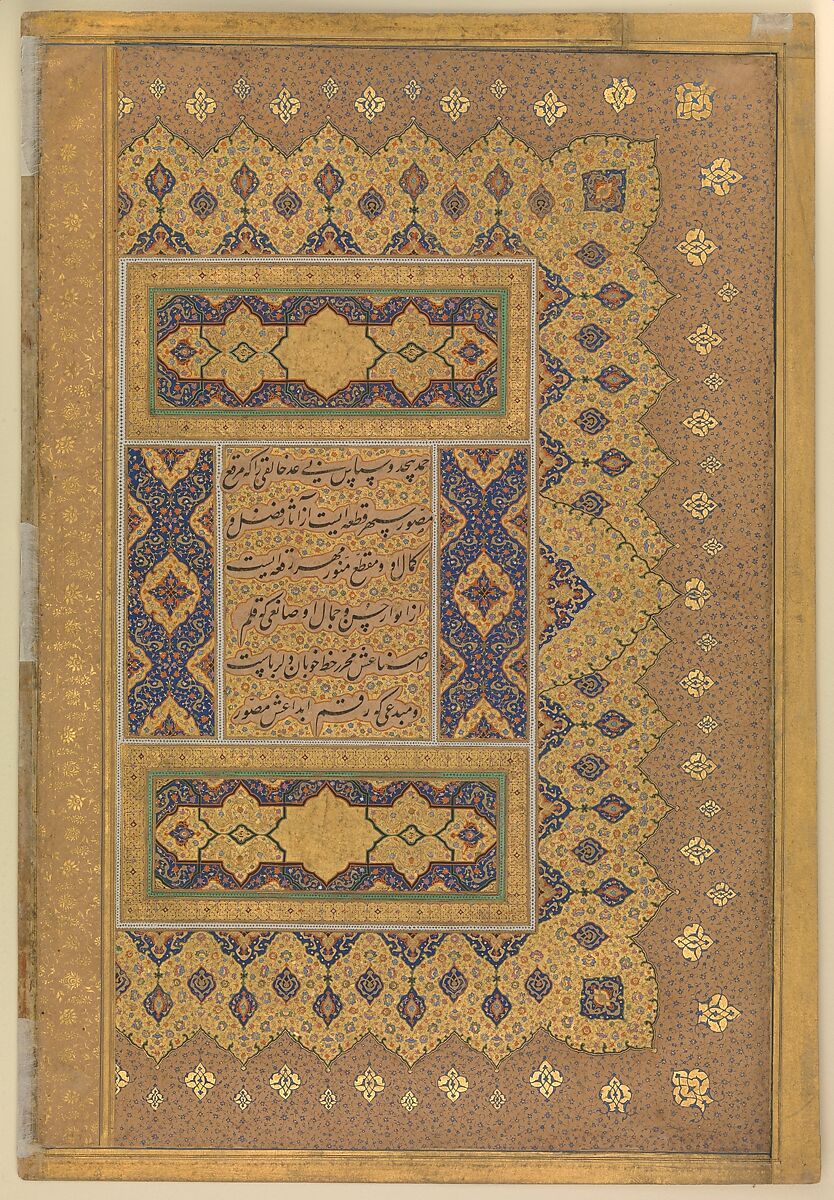 حمد بیحد و سپاس بی عد خالقی را که مرقع
مصور سپهر قطعه ایست از آثار فضل و
کمال او و مقطع منور مهر رقعه ایست
از انوار حسن و جمال او صانعی که قلم
صنعش محرر خط خوبان دلرباست
و مبدعی که رقم ابداعش مصور